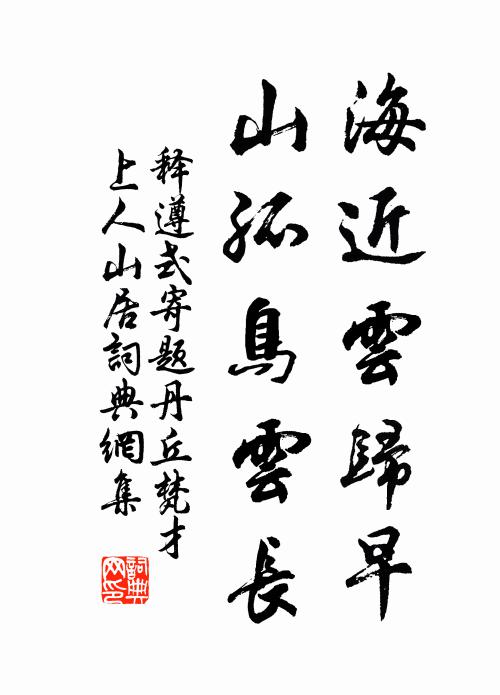 海近雲歸早
山孤鳥雲長
释遵式寄題丹丘梵才
上人山居詞典網集
詞典
网印